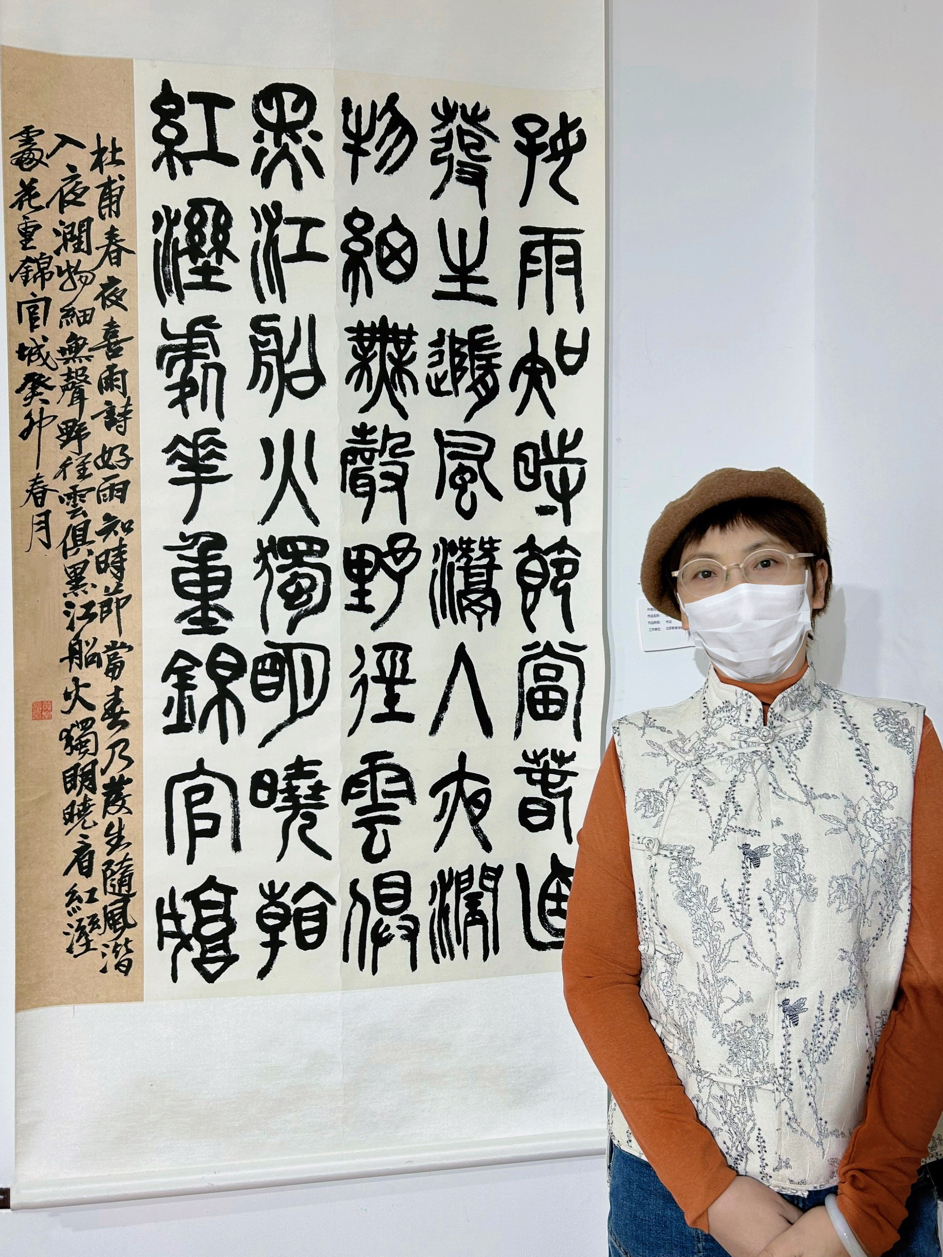 好雨知時節當春迺
發生隨風潛入夜潤
物細無聲野徑雲俱
黑江船火獨明曉看
紅溼處華重錦官城
杜甫春夜喜雨詩好雨知時節當春乃發生隨風潛
入夜潤物細無聲野徑雲俱黑江船火獨明曉看紅溼
處花重錦官城癸卯春月